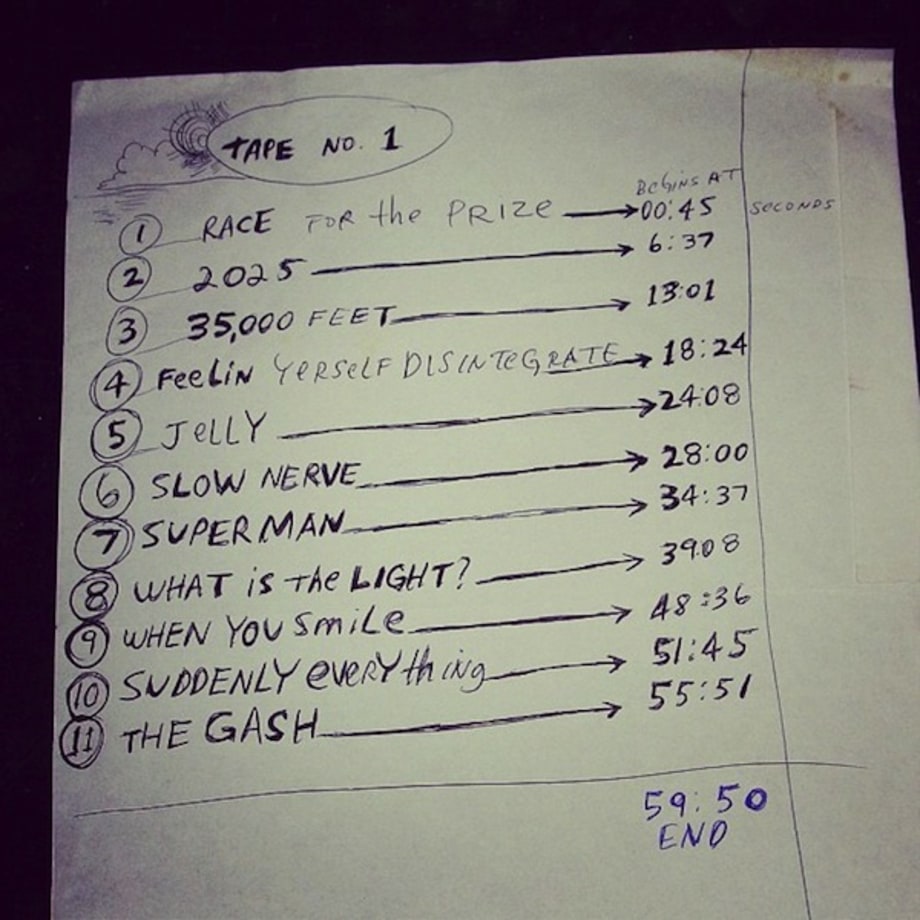 TAPE NO. 1
BEGINS AT
1 RACE FOR the PRIZE 00:45 SECONDS
2 2025 6:37
3 35,000 FEET 13:01
4 FeeLiN YERSeLF DISINTeGRATE 18:24
5 JeLLY 24:08
6 SLOW NERVE 28:00
7 SUPERMAN 34:37
8 WHAT iS THe LIGHT? 39:08
9 WHEN YOU SmiLe 48:36
10 SUDDENLY eveRYthing 51:45
11 THE GASH 55:51
59:50
END